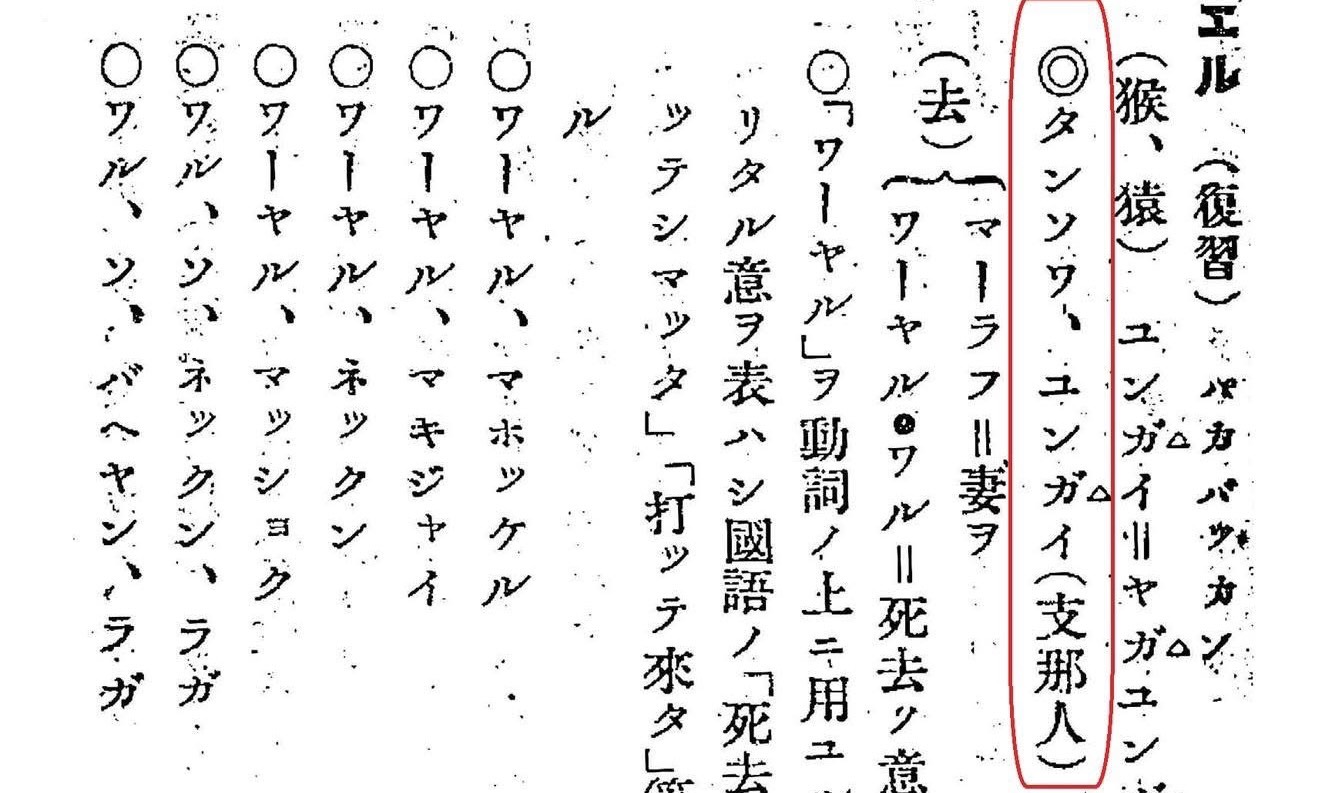 エル（復習）パカパッカン
（猴、猿）ユンガイ＝ヤガユン
◎タンソワ、ユンガイ（支那人）
マーラフ＝妻ヲ
（去）
ワーヤル・ワル＝死去ノ意
○「ワーヤル」ヲ動詞ノ上ニ用ユ
リタル意ヲ表ハシ國語ノ「死去
ッテシマッタ」「打ッテ來タ」等
ル
○ワーヤル、マホッケル
○ワーヤル、マキジャイ
○ワーヤル、ネックン
○ワーヤル、マッショク
○ワル、ソ、ネックン、ラガ
○ワル、ソ、バヘヤン、ラガ